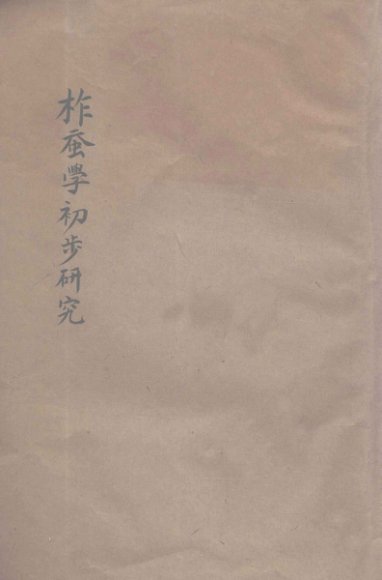 柞蚕學初步研究